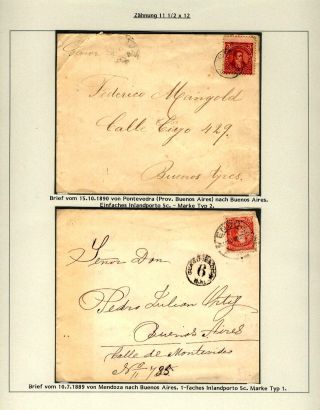 Zähnung 11 1/2 x 12
Señor
Federico Mangold
Calle Cuyo 429.
Buenos Ayres.
Brief vom 15.10.1890 von Pontevedra (Prov. Buenos Aires) nach Buenos Aires.
Einfaches Inlandporto 5c. - Marke Typ 2.
Señor Don
6
Pedro Julian Ortiz
Buenos Aires
Calle de Montevideo
Nº 785
Brief vom 10.7.1889 von Mendoza nach Buenos Aires. 1-faches Inlandporto 5c. Marke Typ 1.